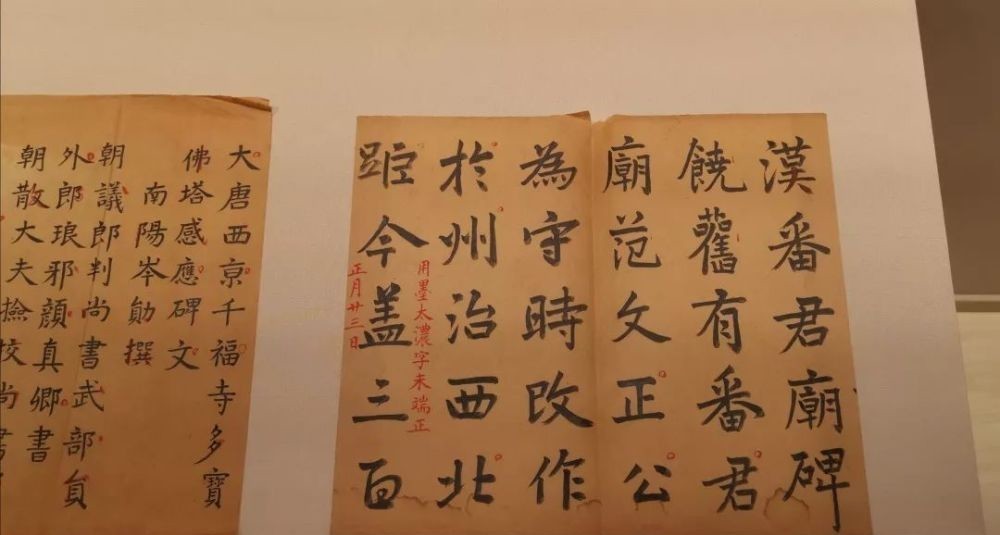 漢番君廟碑
饒舊有番君
廟范文正公
為守時改作
於州治西北
用墨太濃字未端正
正月廿三日
距今蓋三百
大唐西京千福寺多寶
佛塔感應碑文
南陽岑勛撰
朝議郎判尚書武部員
外郎琅邪顏真卿書
朝散大夫撿校尚書